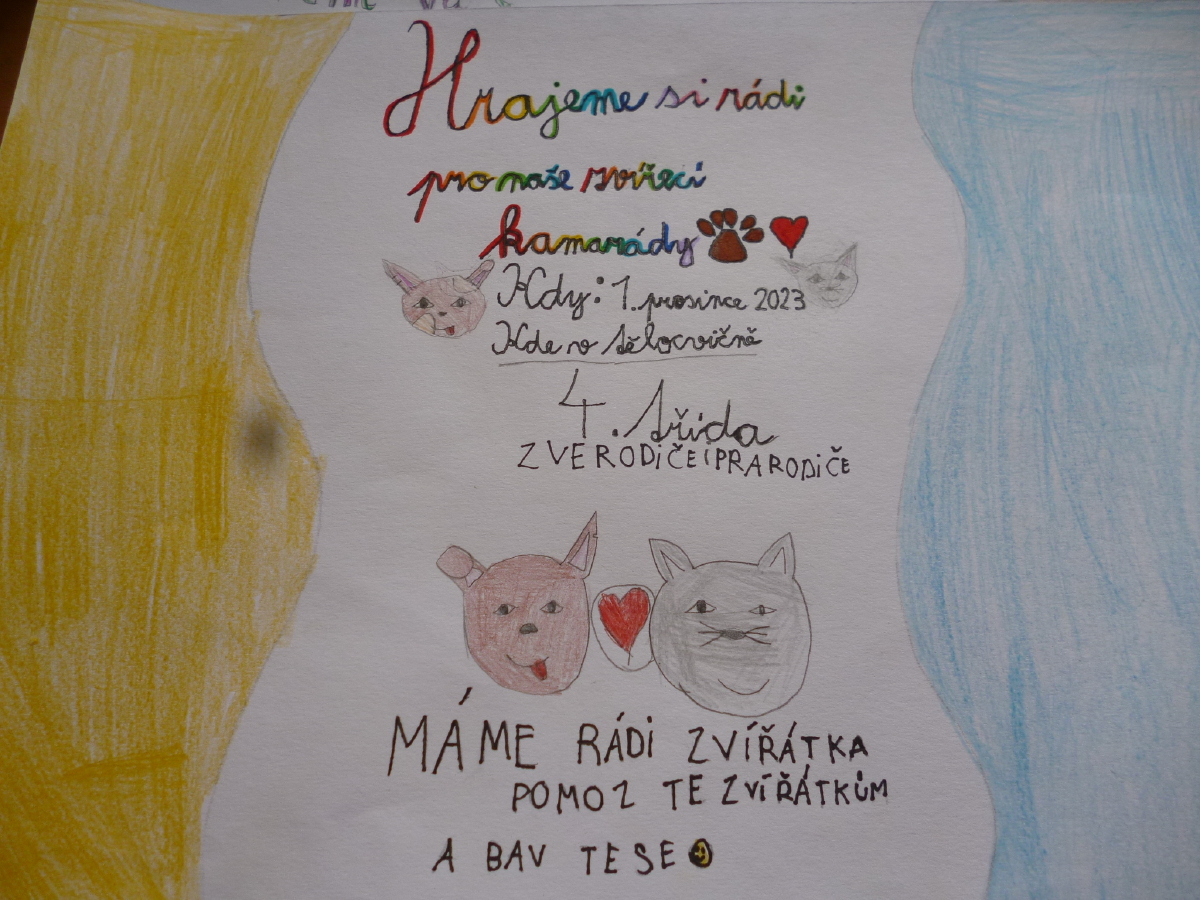 Hrajeme si rádi
pro naše zvířecí
kamarády
Kdy: 1. prosince 2023
Kde v tělocvičně
4. třída
ZVE RODIČE I PRARODIČE
MÁME RÁDI ZVÍŘÁTKA
POMOZ TE ZVÍŘÁTKŮM
A BAV TE SE